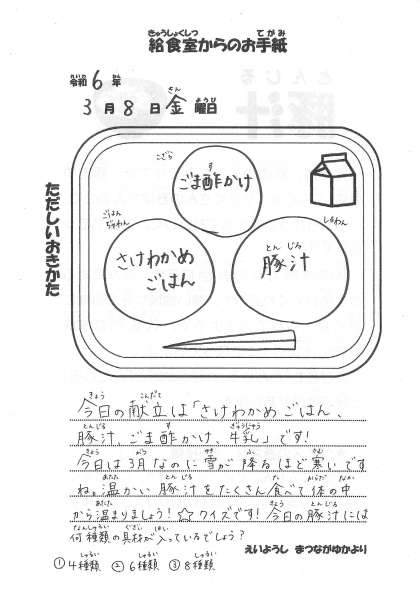 給食室からのお手紙
令和6年
3月8日金曜日
ただしいおきかた
こざら
ごま酢かけ
ごはんぢゃわん
さけわかめごはん
しるわん
豚汁
今日の献立は「さけわかめごはん、
豚汁、ごま酢かけ、牛乳」です!
今日は3月なのに雪が降るほど寒いです
ね。温かい豚汁をたくさん食べて体の中
から温まりましょう!☆クイズです!今日の豚汁には
何種類の具材が入っているでしょう?
①4種類 ②6種類 ③8種類
えいようし まつながゆかより